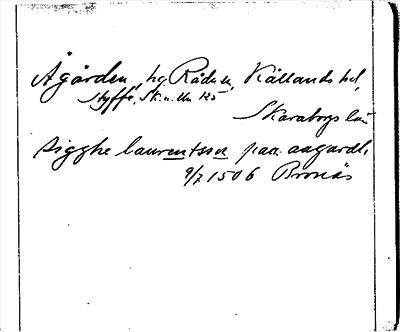 Ågården, hg Råda sn, Kållands hd,
Styffe, Sk. u. Un 125
Skaraborgs län
Sigghe laurentsson paa aagardh
9/7 1506 Bronäs